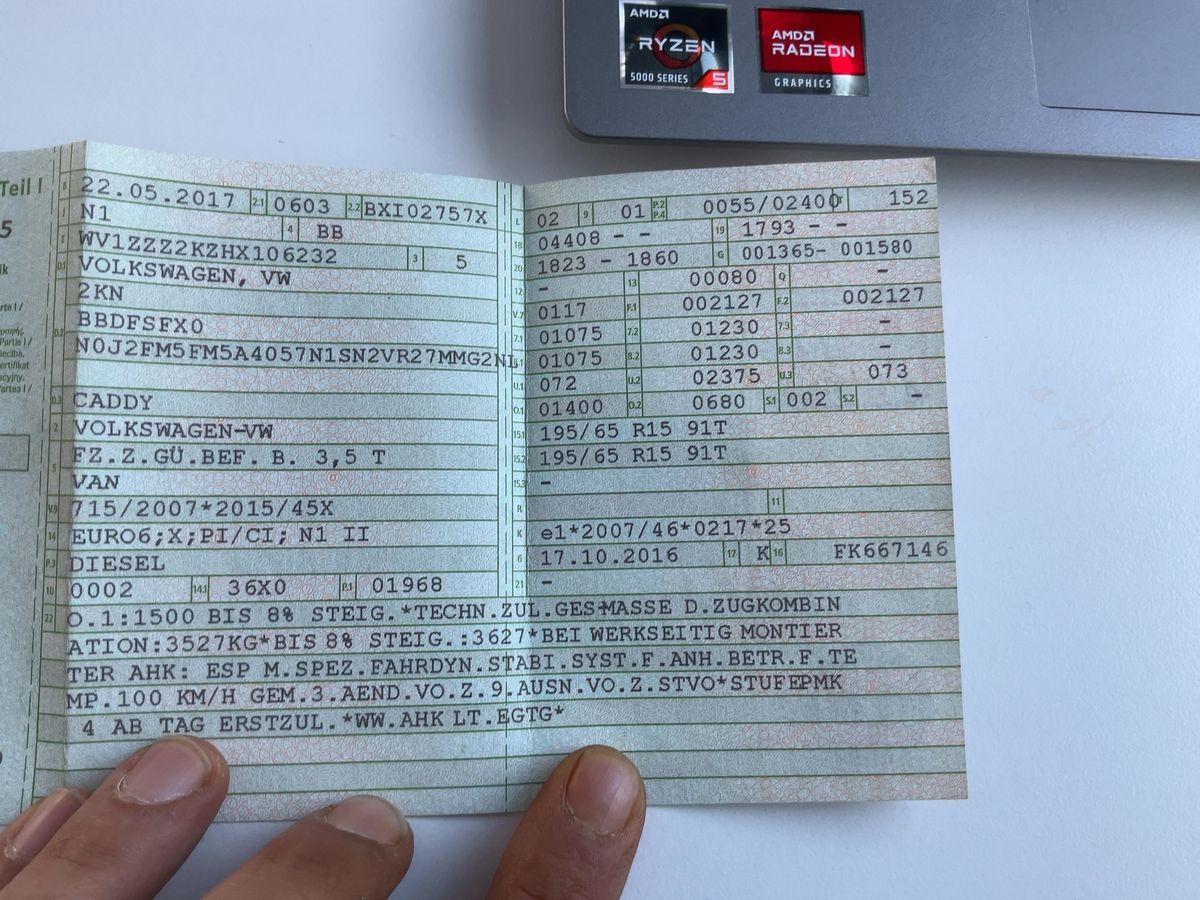 AMD
RYZEN
5000 SERIES 5
AMD
RADEON
GRAPHICS
Teil I
B 22.05.2017 2.1 0603 2.2 BXI02757X
J N1 4 BB
E WV1ZZZ2KZHX106232 3 5
D.1 VOLKSWAGEN, VW
2KN
D.2 BBDFSFX0
N0J2FM5FM5A4057N1SN2VR27MMG2NL
D.3 CADDY
2 VOLKSWAGEN-VW
5 FZ.Z.GÜ.BEF. B. 3,5 T
VAN
V.9 715/2007*2015/45X
14 EURO6;X;PI/CI; N1 II
P.3 DIESEL
10 0002 14.1 36X0 P.1 01968
L 02 9 01 P.2 P.4 0055/02400 T 152
18 04408 - - 19 1793 - -
20 1823 - 1860 G 001365- 001580
12 - 13 00080 Q -
V.7 0117 F.1 002127 F.2 002127
7.1 01075 7.2 01230 7.3 -
8.1 01075 8.2 01230 8.3 -
U.1 072 U.2 02375 U.3 073
O.1 01400 O.2 0680 S.1 002 S.2 -
15.1 195/65 R15 91T
15.2 195/65 R15 91T
15.3 -
R 11
K e1*2007/46*0217*25
6 17.10.2016 17 K 16 FK667146
21 -
22 O.1:1500 BIS 8% STEIG.*TECHN.ZUL.GES-MASSE D.ZUGKOMBIN
ATION:3527KG*BIS 8% STEIG.:3627*BEI WERKSEITIG MONTIER
TER AHK: ESP M.SPEZ.FAHRDYN.STABI.SYST.F.ANH.BETR.F.TE
MP.100 KM/H GEM.3.AEND.VO.Z.9.AUSN.VO.Z.STVO*STUFEPMK
4 AB TAG ERSTZUL.*WW.AHK LT.EGTG*